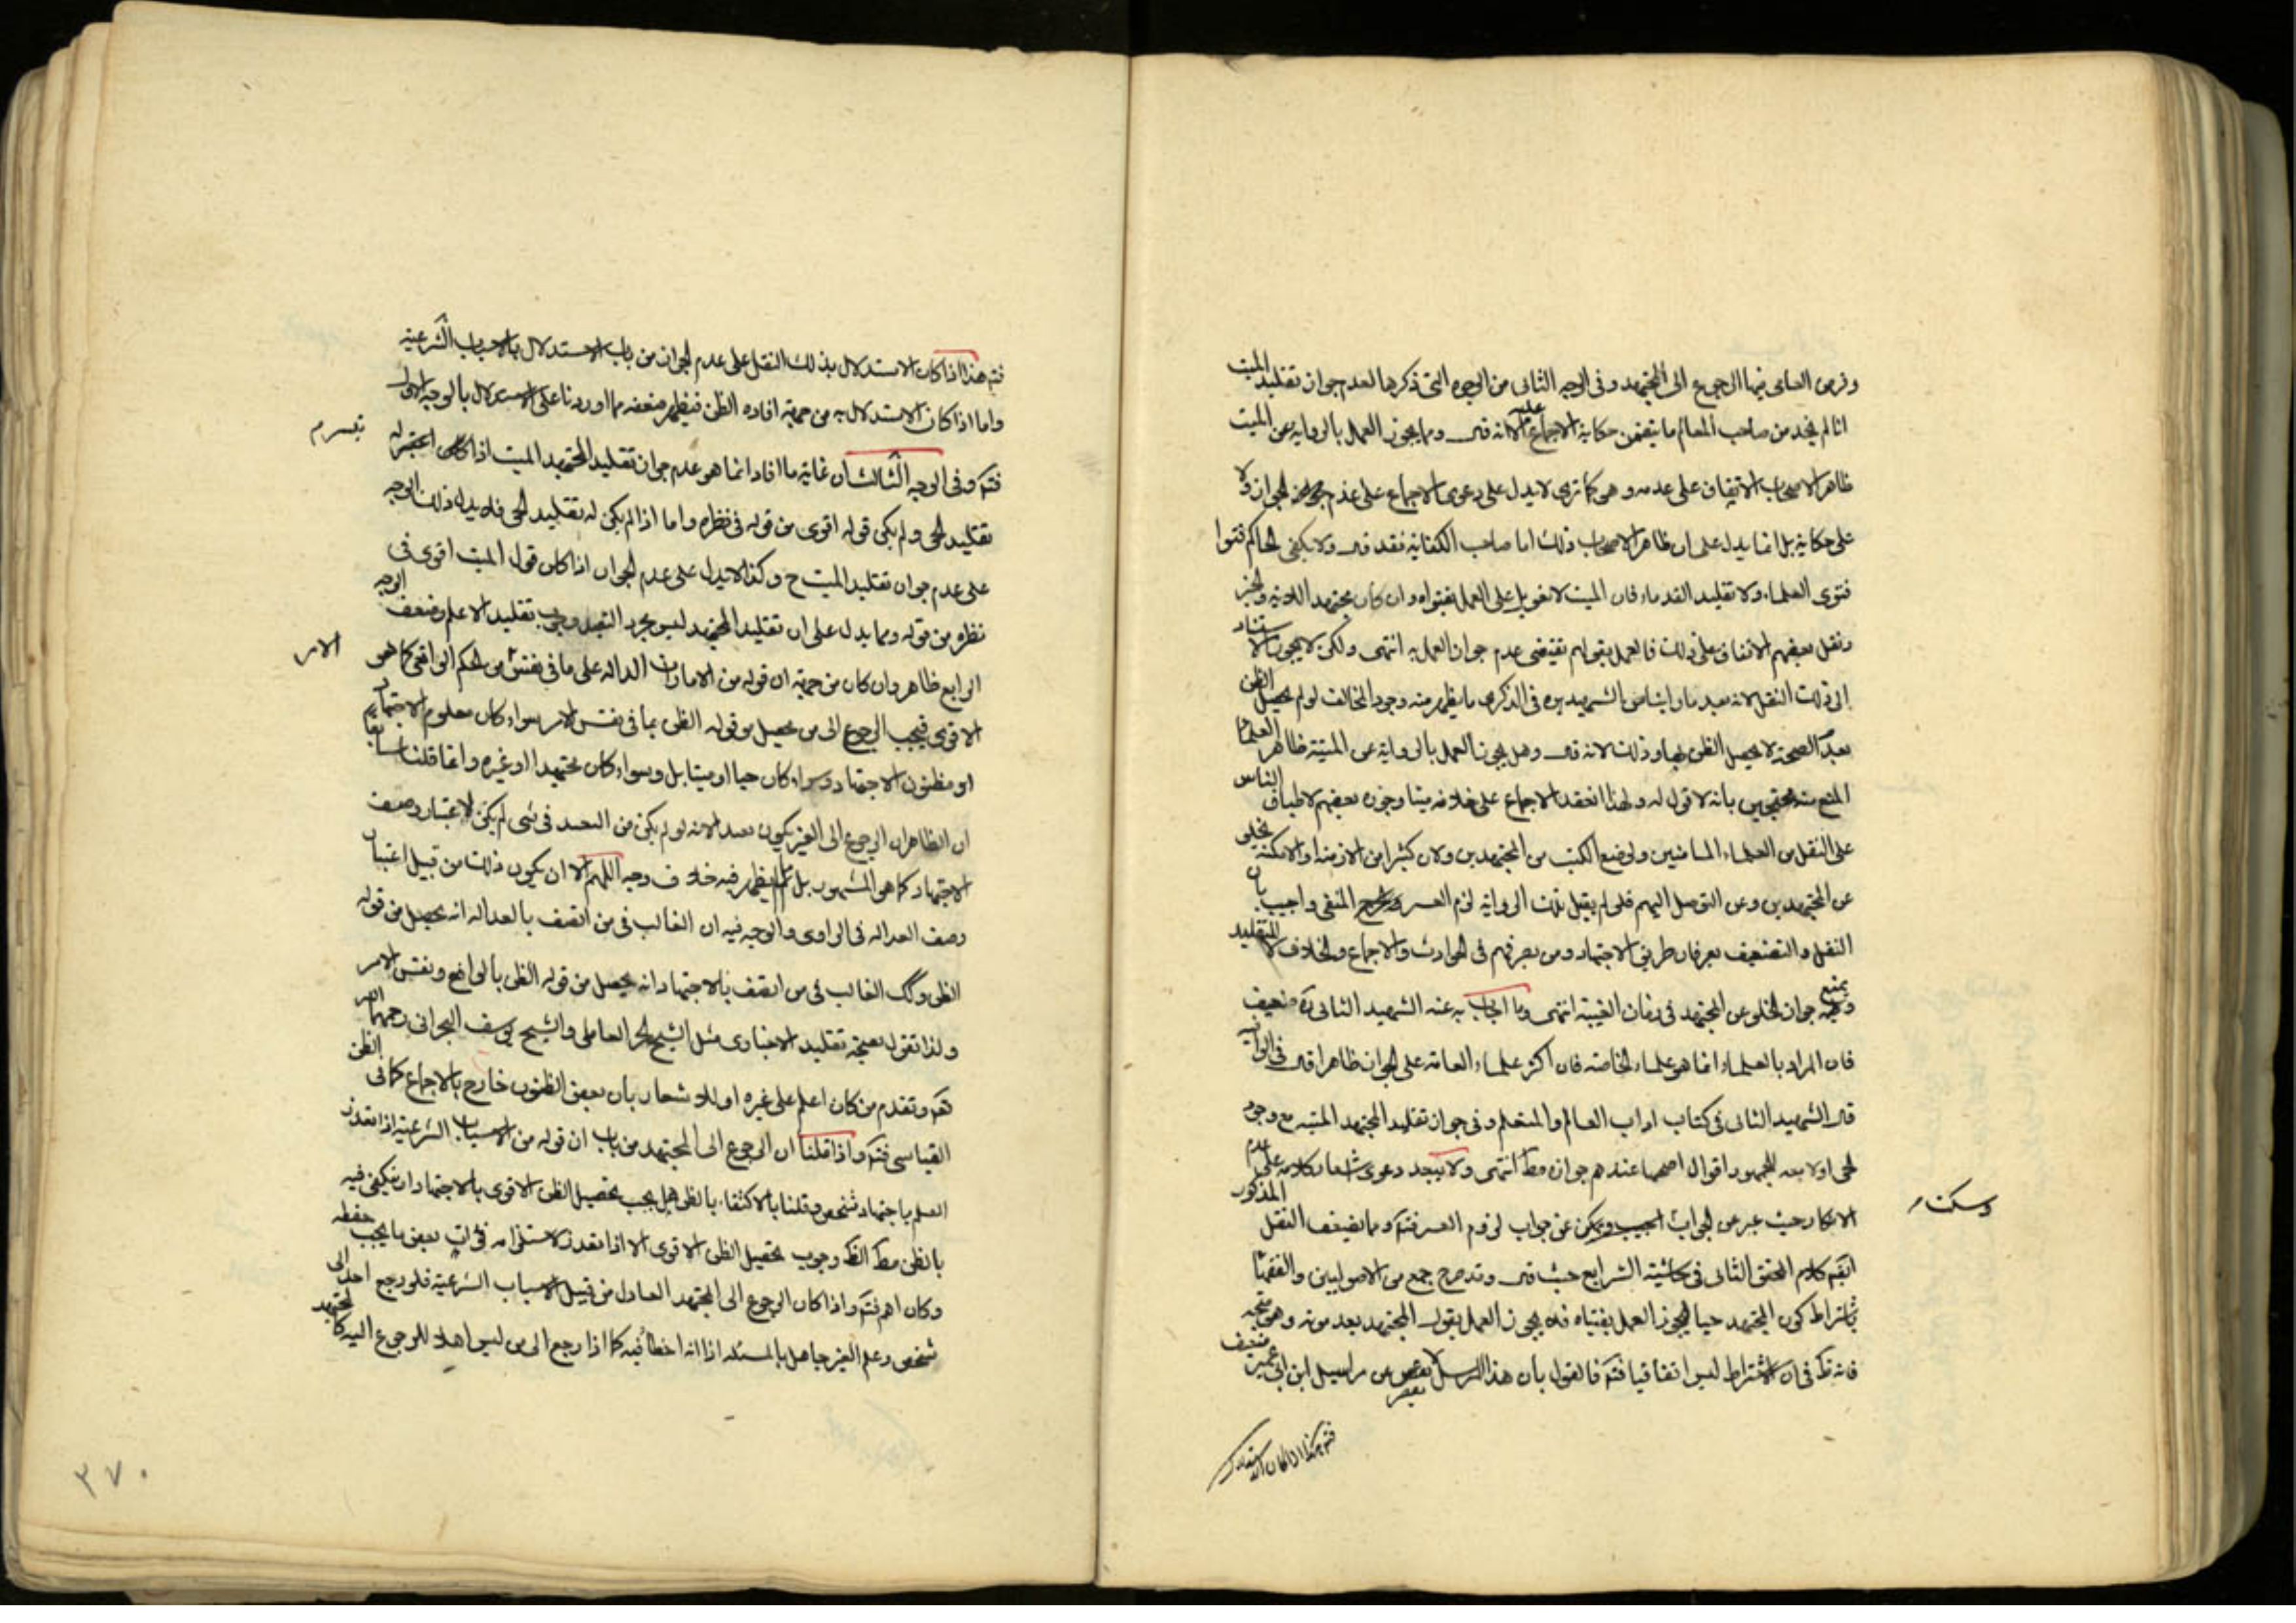 وفرض العامى فيها الرجوع الى المجتهد وفى الوجه الثانى من الوجوه التى ذكرها لعدم جواز تقليد الميت
انا لم نجد من صاحب المعالم ما يتضمن حكاية الاجماع عليه الا انه قال وما يجوز العمل بالرواية عن الميت
ظاهر الاصحاب الاتفاق على عدمه وهو كما ترى لا يدل على دعوى الاجماع على عدم الجواز ولا
على حكايته بل انما يدل على ان ظاهر الاصحاب ذلك اما صاحب الكفاية فقد قال ولا يكفى للحاكم فتوا
فتوى العلماء ولا تقليد القدماء فان الميت لا تعويل على العمل بفتواه وان كان مجتهدا
ونقل بعضهم الاتفاق على ذلك فالعمل بقولهم يقتضى عدم جواز العمل به انتهى ولكن لا يجوز الاستناد
الى ذلك النقل لانه بعد ما راينا من الشهيد ره فى الذكرى ما يظهر منه وجود المخالف لو لم يحصل الظن
بعدم الصحة لا يحصل الظن بها وذلك لانه قال وهل يجوز العمل بالرواية عن الميت ظاهر العلماء
المنع منه محتجين بانه لا قول له ولهذا انعقد الاجماع على خلافه ميتا وجوزه بعضهم لاطباق الناس
على النقل من العلماء الماضين ولوضع الكتب من المجتهدين ولان كثيرا من الازمنة او الامكنة يخلو
عن المجتهدين وعن التوصل اليهم فلو لم يقبل تلك الرواية لزم العسر والحرج المنفى واجيب بان
النقل والتصنيف يعرفان طريق الاجتهاد ومن تصرفهم فى الحوادث والاجماع والخلاف لا التقليد
ويمنع جواز الخلو عن المجتهد فى زمان الغيبة انتهى وما اجاب به عنه الشهيد الثانى ره ضعيف
فان المراد بالعلماء انما هو علماء الخاصة فان اكثر علماء العامة على الجواز ظاهرا قال
قال الشهيد الثانى فى كتاب اداب العالم والمتعلم وفى جواز تقليد المجتهد الميت مع وجود
الحى اولا معه للجمهور اقوال اصحها عندهم جوازه مط انتهى ولا يبعد دعوى اشعار كلامه على عدم
الانكار حيث عبر عن الجواب المذكور باجيب وسكت عن جواب لزوم العسر فتم ومما يضعف النقل
ايضا كلام المحقق الثانى فى حاشية الشرايع حيث قال وقد صرح جمع من الاصوليين والفقهاء
باشتراط كون المجتهد حيا ليجوز العمل بفتياه فلا يجوز العمل بقول المجتهد بعد موته وهو متجه
فانه ظ فى ان الاشتراط ليس اتفاقيا فتم فالقول بان هذا المرسل لا يقصر عن مراسيل ابن ابى عمير ضعيف
وسكت
فتم هذا اذا كان الاستدلال
فتم هذا اذا كان الاستدلال بذلك النقل على عدم الجواز من باب الاستدلال بالاسباب الشرعية
واما اذا كان الاستدلال به من جهة افادة الظن فيظهر ضعفه مما اوردنا على الاستدلال بالوجه الاول
فتم وفى الوجه الثالث ان غاية ما افاد انما هو عدم جواز تقليد المجتهد الميت اذا كان
تقليد الحى ولم يكن قوله اقوى من قوله فى نظره واما اذا لم يكن له تقليد الحى فلا يدل ذلك الوجه
على عدم جواز تقليد الميت ح وكذا لا يدل على عدم الجواز اذا كان قول الميت اقوى فى
نظره من قوله ومما يدل على ان تقليد المجتهد ليس بمجرد التعبد وجوب تقليد الاعلم وضعف الوجه
الرابع ظاهر وان كان من جهة ان قوله من الامارات الدالة على ما فى نفس الامر من الحكم الواقعى كما هو
الاقوى فيجب الرجوع الى من يحصل من قوله الظن بما فى نفس الامر سواء كان معلوم الاجتهاد
او مظنون الاجتهاد وسواء كان حيا او ميتا بل وسواء كان مجتهدا او غيره وانما قلنا سابقا
ان الظاهر ان الرجوع الى الغير يكون تعبدا لانه لو لم يكن من التعبد فى شى لم يكن لاعتبار وصف
الاجتهاد كما هو المشهور بل لم يظهر فيه خلاف وجه اللهم الا ان يكون ذلك من قبيل اعتبار
وصف العدالة فى الراوى والوجه فيه ان الغالب فى من اتصف بالعدالة انه يحصل من قوله
الظن وكك الغالب فى من اتصف بالاجتهاد انه يحصل من قوله الظن بالواقع ونفس الامر
ولذا نقول بصحة تقليد الاخبارى مثل الشيخ الحر العاملى والشيخ يوسف البحرانى رحمهما الله
فتم وتقدم من كان اعلم على غيره اولا اشعار بان بعض الظنون خارج بالاجماع كما فى الظن
القياسى فتم واذا قلنا ان الرجوع الى المجتهد من باب ان قوله من الاسباب الشرعية اذا تعذر
العلم باجتهاد شخص وقلنا بالاكتفاء بالظن هل يجب تحصيل الظن الاقوى بالاجتهاد او يكفى فيه
بالظن مط الظ وجوب تحصيل الظن الاقوى الا اذا تعذر لاستلزامه فوات بعض ما يجب حفظه
وكان اهم فتم واذا كان الرجوع الى المجتهد العادل من قبيل الاسباب الشرعية فلو رجع احد الى
شخص وعلم الغير جاهل بالمسئلة اذا انه اخطأ فيه كما اذا رجع الى من ليس اهلا للرجوع اليه كالمجتهد
الامر
٣٧٠